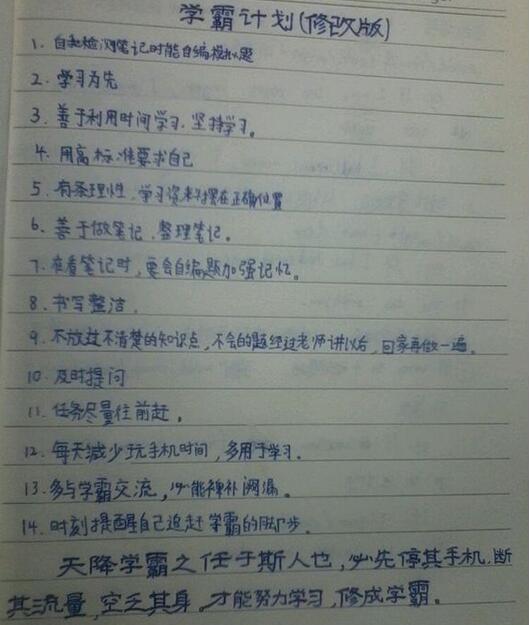 学霸计划(修改版)
1. 自我检测笔记时能自编模拟题
2. 学习为先
3. 善于利用时间学习.坚持学习。
4. 用高标准要求自己
5. 有条理性,学习资料摆在正确位置
6. 善于做笔记.整理笔记。
7. 在看笔记时,要会自编题加强记忆。
8. 书写整洁.
9. 不放过不清楚的知识点,不会的题经过老师讲以后,回家再做一遍。
10. 及时提问
11. 任务尽量往前赶。
12. 每天减少玩手机时间,多用于学习.
13. 多与学霸交流,必能裨补阙漏。
14. 时刻提醒自己追赶学霸的脚步.
天降学霸之任于斯人也,必先停其手机,断
其流量,空乏其身。才能努力学习,修成学霸。